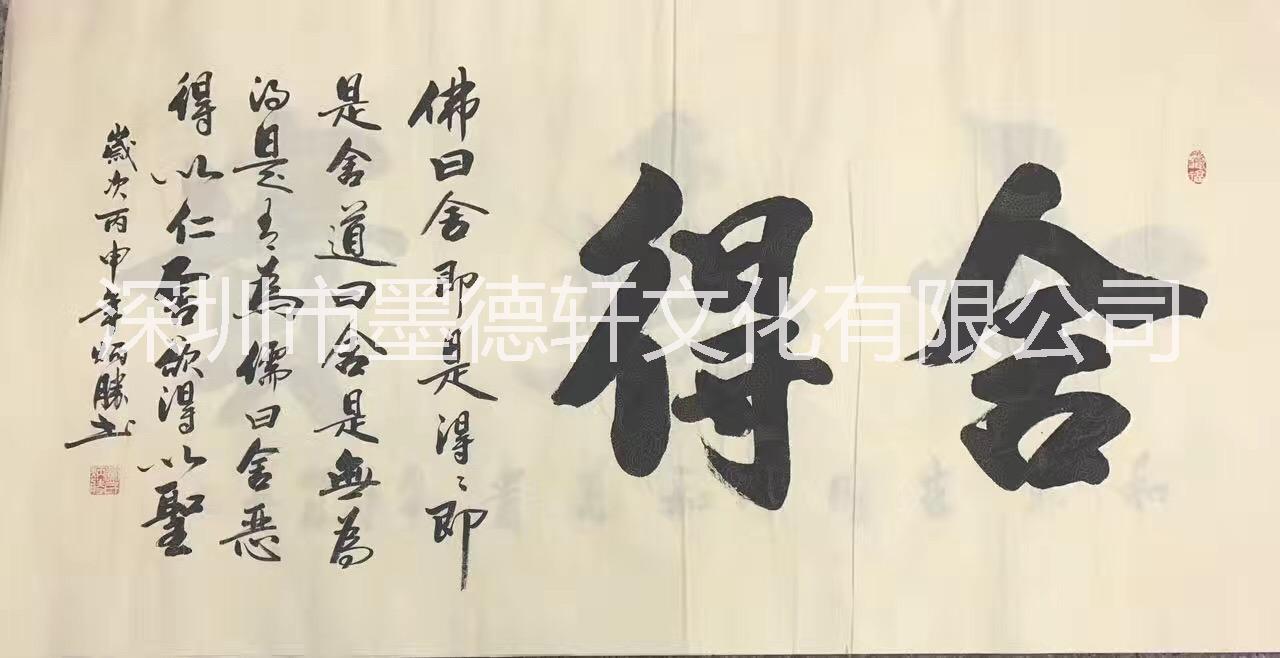 舍得
佛曰舍即是得〻即
是舍道曰舍是無為
得是有為儒曰舍惡
得以仁舍欲得以聖
歲次丙申年炳勝书
深圳市墨德轩文化有限公司